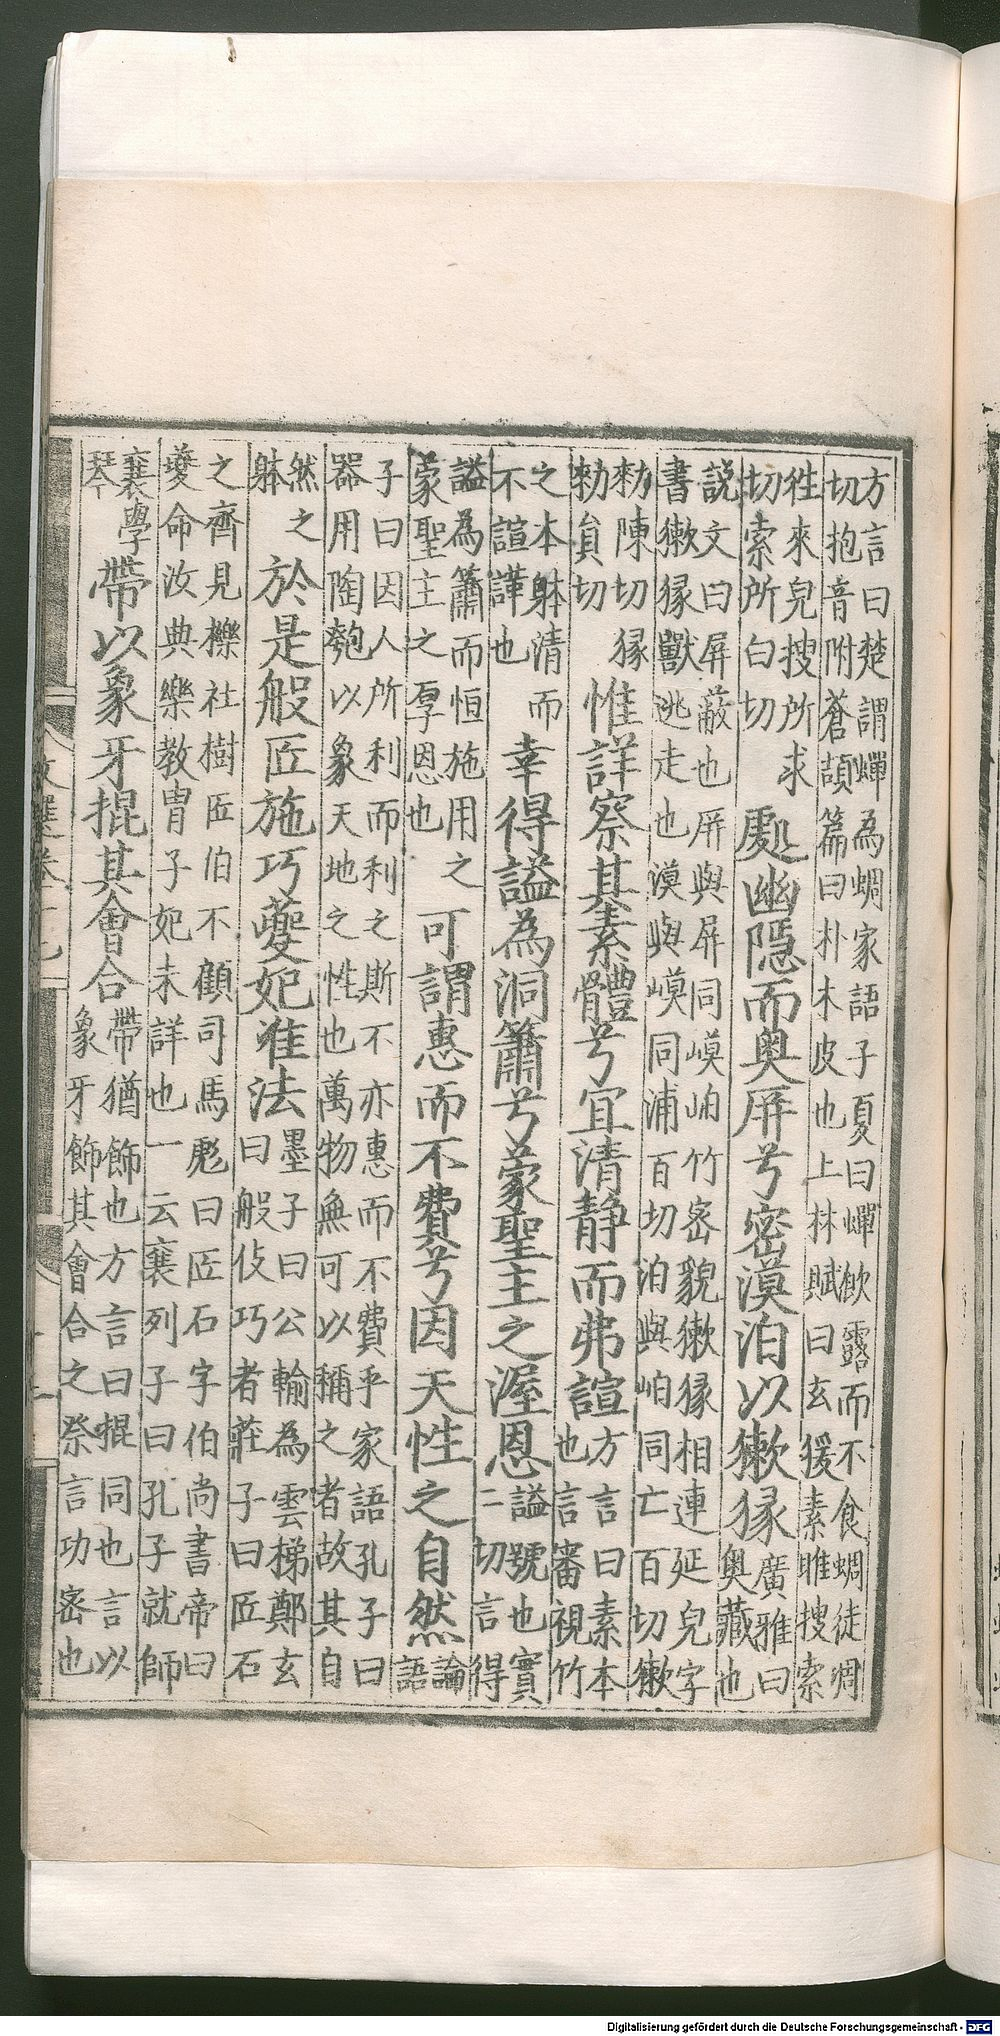 方言曰楚謂蟬為蜩家語子夏曰蟬飲露而不食蜩徒凋
切抱音附蒼頡篇曰朴木皮也上林賦曰玄猨素雌搜索
徃來皃搜所求
切索所白切
處幽隱而奥屏兮密漠泊以獙猭
廣雅曰
奥藏也
説文曰屏蔽也屏與屏同嗼岶竹宻貌獙猭相連延皃字
書獙猭獸逃走也漠與嗼同浦百切泊與岶同亡百切獙
勑陳切猭
勑貟切
惟詳察其素體兮宜清静而弗諠
方言曰素本
也言審視竹
之本躰清而
不諠譁也
幸得謚為洞簫兮蒙聖主之渥恩
謚號也實
二切言得
謚為簫而恒施用之
蒙聖主之厚恩也
可謂惠而不費兮因天性之自然
論
語
子曰因人所利而利之斯不亦惠而不費乎家語孔子曰
器用陶匏以象天地之性也萬物無可以稱之者故其自
然之
躰
於是般匠施巧夔妃准法
墨子曰公輸為雲梯鄭玄
曰般伎巧者莊子曰匠石
之齊見櫟社樹匠伯不顧司馬彪曰匠石字伯尚書帝曰
夔命汝典樂教胄子妃未詳也一云襄列子曰孔子就師
襄學
琴
帶以象牙掍其會合
帶猶飾也方言曰掍同也言以
象牙飾其會合之祭言功密也
Digitalisierung gefördert durch die Deutsche Forschungsgemeinschaft - DFG